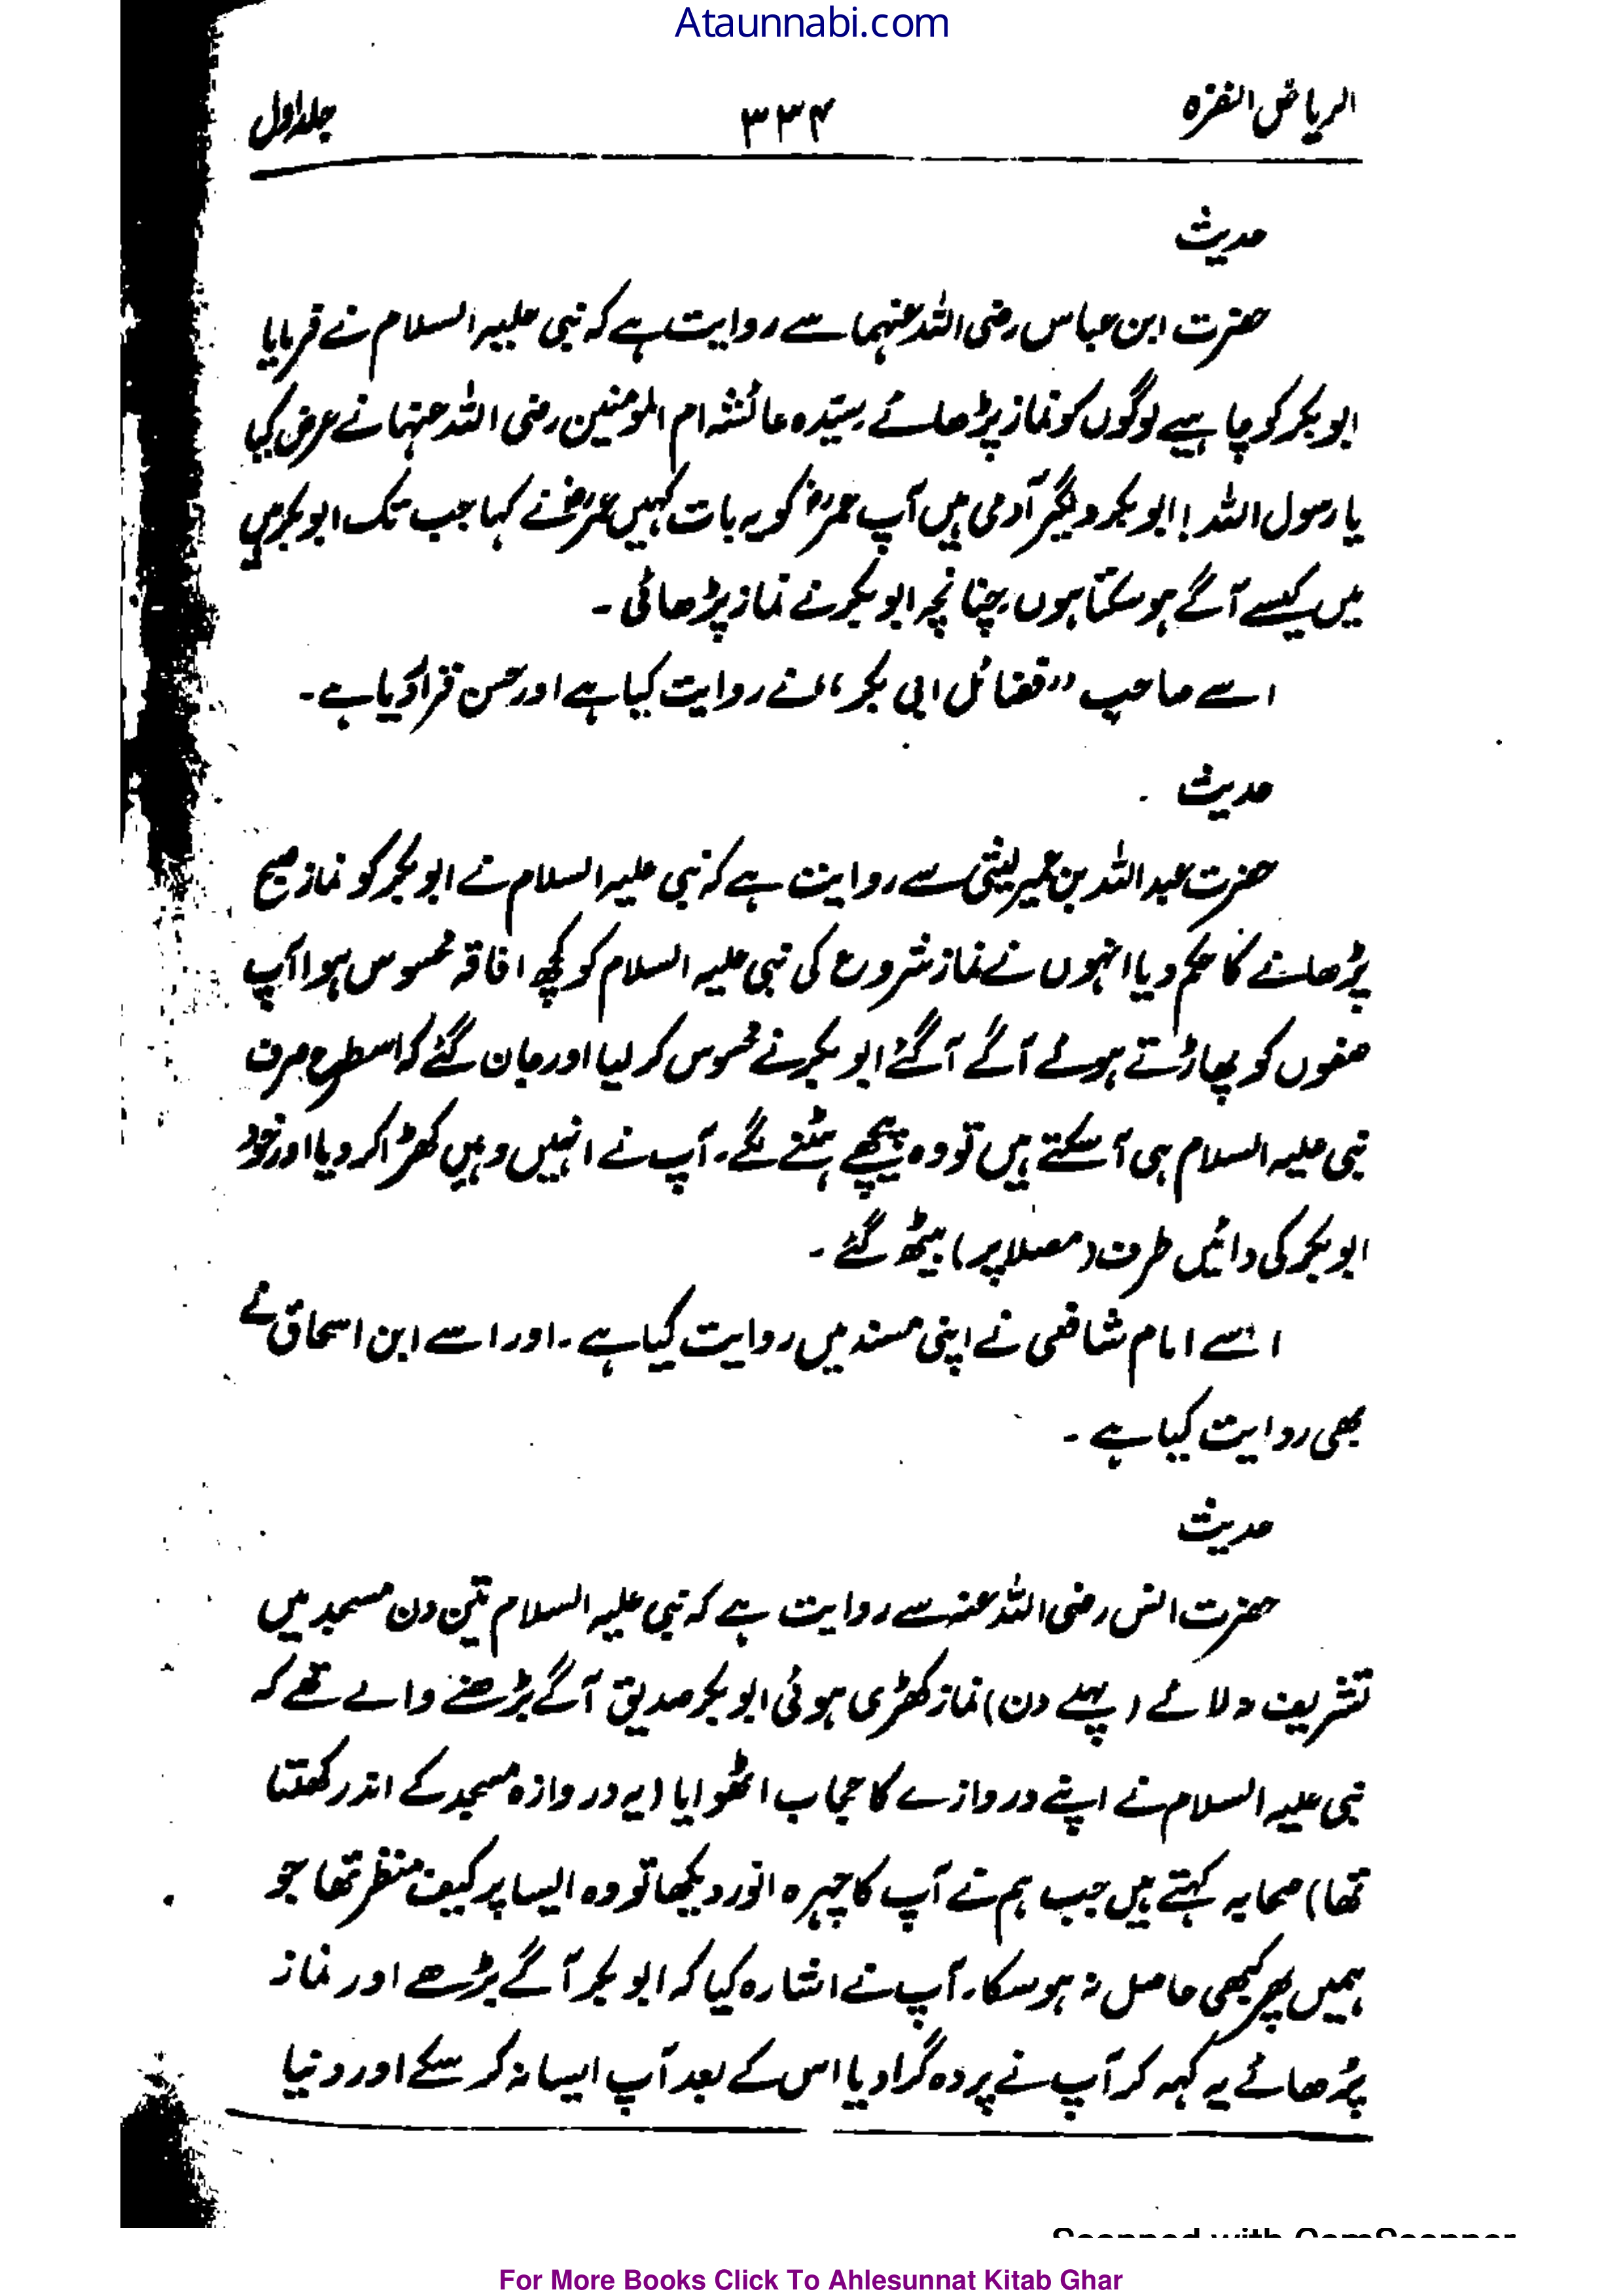 Ataunnabi.com
الریاض النضرہ ۳۳۴ جلد اول
حدیث
حضرت ابن عباس رضی اللہ عنہما سے روایت ہے کہ نبی علیہ السلام نے فرمایا
ابو بکر کو چاہیے لوگوں کو نماز پڑھائے۔ سیّدہ عائشہ ام المومنین رضی اللہ عنہا نے عرض کیا
یا رسول اللہ! ابو بکر دیگر آدمی ہیں آپ عمرؓ کو یہ بات کہیں عمرؓ نے کہا جب تک ابو بکر ہیں
میں کیسے آگے ہو سکتا ہوں۔ چنانچہ ابو بکر نے نماز پڑھائی۔
اسے صاحب ”فضائل ابی بکر“ نے روایت کیا ہے اور حسن قرار دیا ہے۔
حدیث
حضرت عبد اللہ بن عمیر لیثی سے روایت ہے کہ نبی علیہ السلام نے ابو بکر کو نماز صبح
پڑھانے کا حکم دیا انہوں نے نماز شروع کی نبی علیہ السلام کو کچھ افاقہ محسوس ہوا آپ
صفوں کو پھاڑتے ہوئے آگے آگئے ابو بکر نے محسوس کر لیا اور جان گئے کہ اسطرح صرف
نبی علیہ السلام ہی آ سکتے ہیں تو وہ پیچھے ہٹنے لگے۔ آپ نے انہیں وہیں کھڑا کر دیا اور خود
ابو بکر کی دائیں طرف (مصلا پر) بیٹھ گئے۔
اسے امام شافعی نے اپنی مسند میں روایت کیا ہے۔ اور اسے ابن اسحاق نے
بھی روایت کیا ہے۔
حدیث
حضرت انس رضی اللہ عنہ سے روایت ہے کہ نبی علیہ السلام تین دن مسجد میں
تشریف نہ لائے (پہلے دن) نماز کھڑی ہوئی ابو بکر صدیق آگے بڑھنے والے تھے کہ
نبی علیہ السلام نے اپنے دروازے کا حجاب اٹھوایا (یہ دروازہ مسجد کے اندر کھلتا
تھا) صحابہ کہتے ہیں جب ہم نے آپ کا چہرہ انور دیکھا تو وہ ایسا پر کیف منظر تھا جو
ہمیں پھر کبھی حاصل نہ ہو سکا۔ آپ نے اشارہ کیا کہ ابو بکر آگے بڑھے اور نماز
پڑھائے یہ کہہ کر آپ نے پردہ گرا دیا اس کے بعد آپ ایسا نہ کر سکے اور دنیا
Scanned with CamScanner
For More Books Click To Ahlesunnat Kitab Ghar